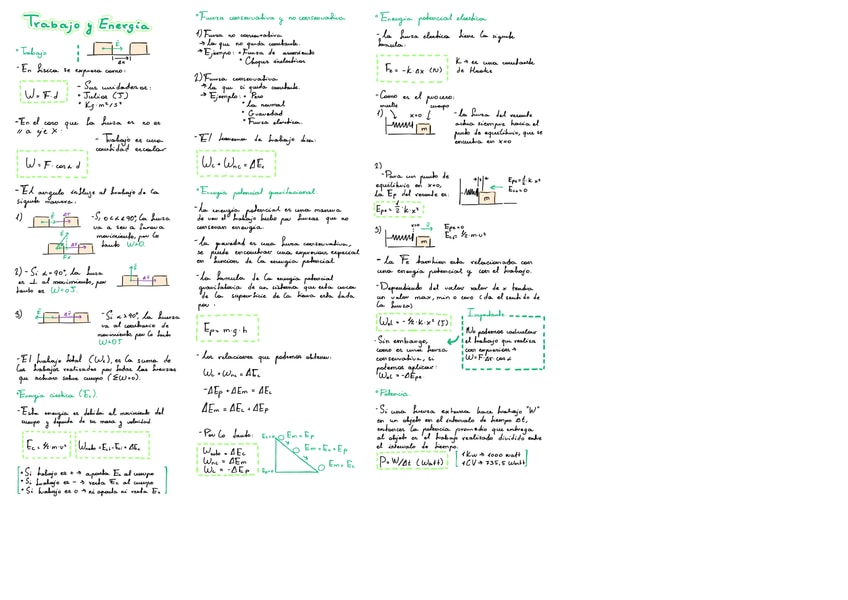 Trabajo y Energía
* Trabajo
- En física se expresa como:
W = F·d
- Sus unidades son:
• Julios (J)
• Kg·m²/s²
- En el caso que la fuerza es no es
// a eje X:
W = F·cosα·d
- Trabajo es una
cantidad escalar
- El angulo influye al trabajo de la
siguiente manera:
1)
- Si 0≤α≤90°, la fuerza
va a favor
movimiento, por lo
tanto W>0.
2) - Si α=90°, la fuerza
es ⊥ al movimiento, por
tanto es W=0J.
3)
- Si α>90°, la fuerza
va al contrario de
movimiento, por lo tanto
W<0J
- El trabajo total, es la suma de
los trabajos realizados por todas las fuerzas
que actúan sobre cuerpo (ΣW=0).
* Energía cinética (Ec)
- Esta energía es debida al movimiento del
cuerpo y depende de su masa y velocidad.
Ec = 1/2·m·v²
= ΔEc
• Si trabajo es + → aporta Ec al cuerpo
• Si trabajo es - → resta Ec al cuerpo
• Si trabajo es 0 → ni aporta ni resta Ec
* Fuerza conservativa y no conservativa
1) Fuerza no conservativa
→ la que no queda constante.
→ Ejemplo: • Fuerza de
• Choques inelasticos
2) Fuerza conservativa
→ la que si queda constante.
→ Ejemplo: • Peso
• la normal
• Gravedad
• Fuerza electrica.
- El teorema de trabajo dice:
Wc + Wnc = ΔEc
* Energía potencial gravitacional.
- la energía potencial es una manera
de ver el trabajo hecho por fuerzas que
conservan energía.
- la gravedad es una fuerza conservativa,
se puede encontrar una expresion especial
en funcion de la energía potencial
- la formula de la energía potencial
gravitatoria de un sistema que esta cerca
de la superficie de la tierra esta dada
por:
Ep = m·g·h
- las relaciones que podemos obtener:
Wc + Wnc = ΔEc
-ΔEp + ΔEm = ΔEc
ΔEm = ΔEc + ΔEp
- Por lo tanto:
= ΔEc
Wnc = ΔEm
Wc = -ΔEp
Em = Ep
Em = Ec + Ep
Em = Ec
* Energía potencial elastica
- la fuerza elastica tiene la siguiente
formula:
Fe = -K·Δx (N)
K → es una constante
de Hooke
- Como es el proceso:
muelle x=0 cuerpo
1)
m
- la fuerza del resorte
actua siempre hacia el
punto de equilibrio, que se
encuentra en x=0
2)
- Para un punto de
equilibrio en x=0,
la Ep del resorte es:
Epe = 1/2·K·x²
m
Epe = 1/2·K·x²
Ec = 0
3)
m
Epe = 0
Ec = 1/2·m·v²
- la Fe tambien esta relacionada con
una energía potencial y con el trabajo.
- Dependiendo del valor valor de x tendra
un valor max, min o cero (da el sentido de
la fuerza)
Wel = -1/2·K·x² (J)
- Sin embargo,
como es una fuerza
conservativa, si
podemos aplicar:
Wel = -ΔEpe
Importante
No podemos calcular
el trabajo que realiza
con expresión →
W=F·Δr·cosα
* Potencia
- Si una fuerza externa hace trabajo "W"
en un objeto en el intervalo de tiempo Δt,
entonces la potencia promedio que entrega
al objeto es el trabajo realizado dividido entre
el intervalo de tiempo.
P = W/Δt (Watt)
1 Kw → 1000 watt
1 CV → 735,5 Watt